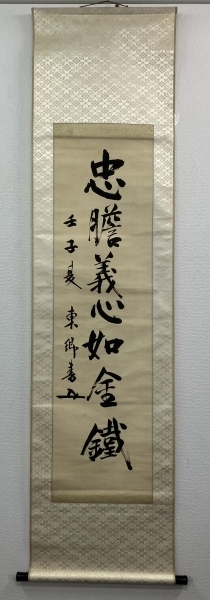 忠膽義心如金鐵
壬子夏 東郷書